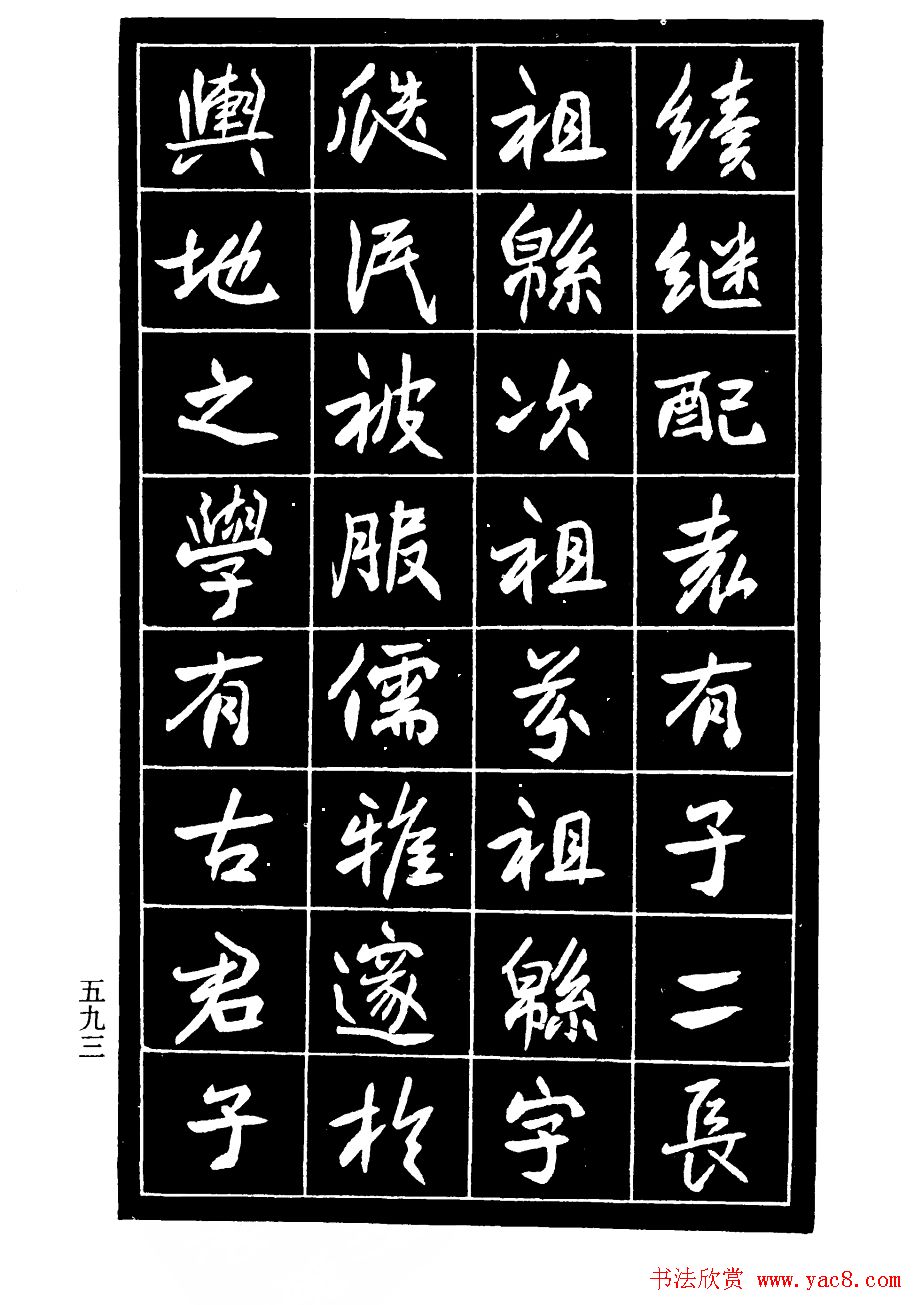 續继配袁有子二長
祖緜次祖芬祖緜字
瓞民被服儒雅邃於
輿地之學有古君子
五九三
书法欣赏 www.yac8.com